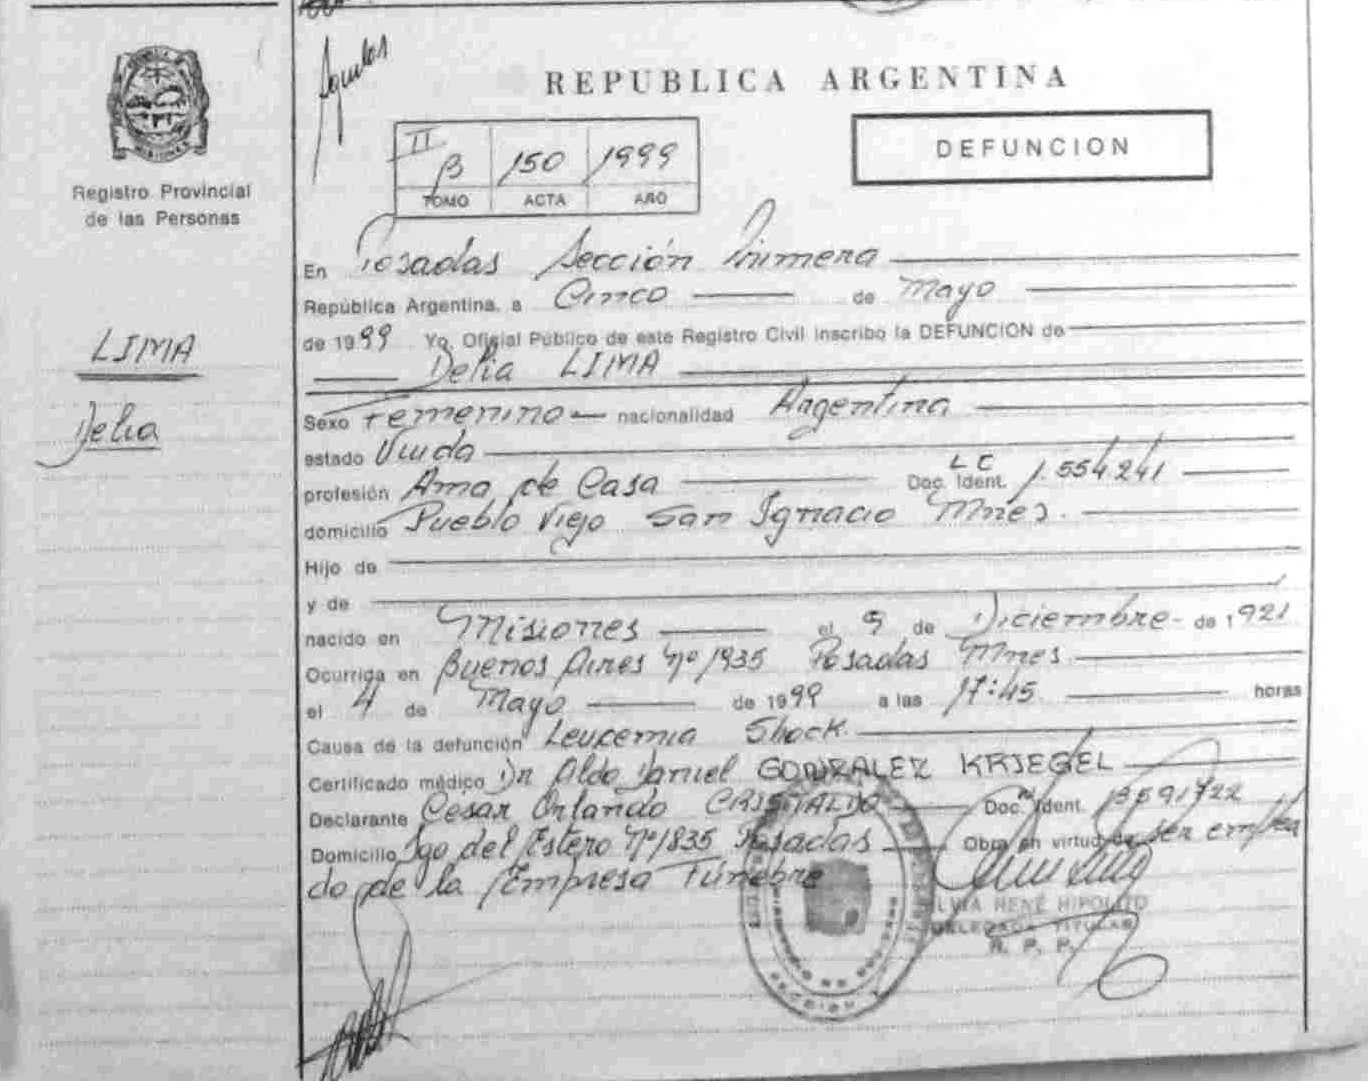 REPUBLICA ARGENTINA
DEFUNCION
II
B 150 1999
TOMO ACTA AÑO
MISIONES
Registro Provincial
de las Personas
LIMA
Delia
En Posadas Sección Primera
República Argentina, a Cinco de Mayo
de 1999 Yo, Oficial Público de este Registro Civil inscribo la DEFUNCION de
Delia LIMA
Sexo Femenino nacionalidad Argentina
estado Viuda
profesión Ama de Casa Doc. Ident. LC 1.554.241
domicilio Pueblo Viejo San Ignacio Mnes.
Hijo de
y de
nacido en Misiones el 9 de Diciembre de 1921
Ocurrida en Buenos Aires Nº 1935 Posadas Mnes.
el 4 de Mayo de 1999 a las 17:45 horas
Causa de la defunción Leucemia Shock.
Certificado médico Dr Aldo Daniel GONZALEZ KRIEGEL
Declarante Cesar Orlando CRISTALDO Doc. Ident.
Domicilio Sgo del Estero Nº 1835 Posadas Obra en virtud de ser emplea
do de la Empresa Fúnebre
SILVIA RENÉ HIPOLITO
DELEGADA TITULAR
R. P. P.